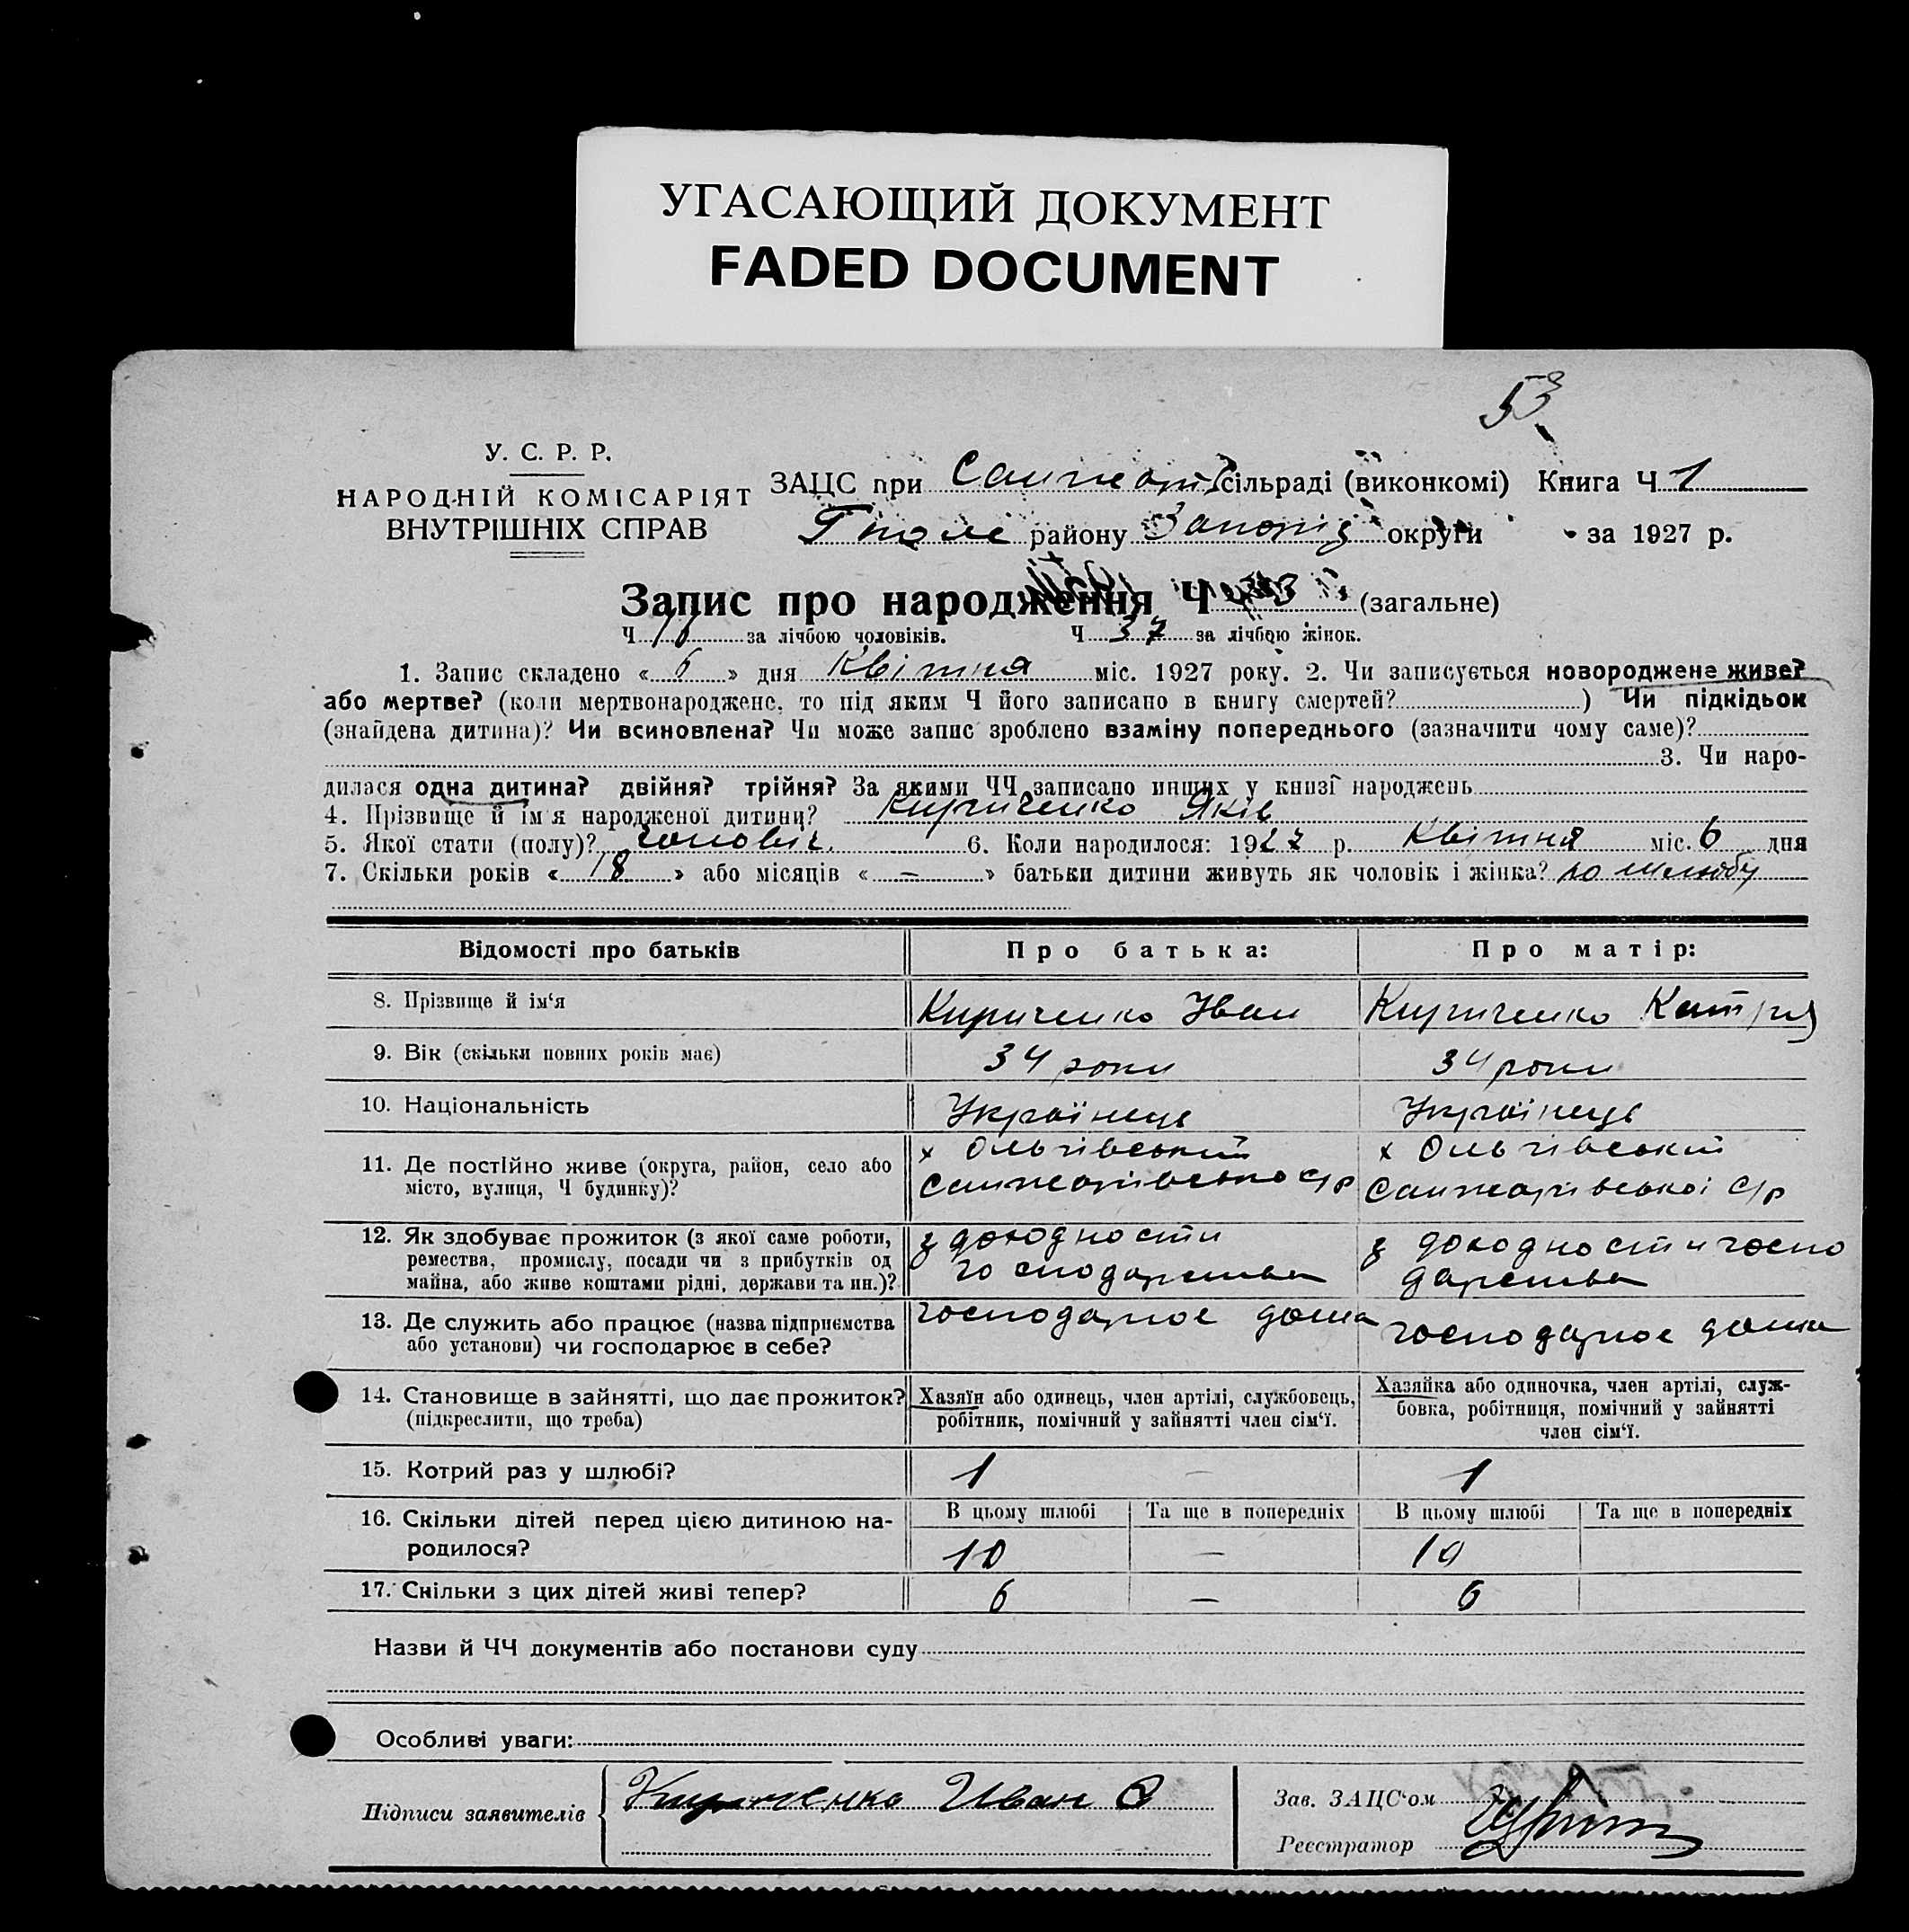 УГАСАЮЩИЙ ДОКУМЕНТ
FADED DOCUMENT
53
У. С. Р. Р.
НАРОДНІЙ КОМІСАРІЯТ
ВНУТРІШНІХ СПРАВ
ЗАЦС при Санжар сільраді (виконкомі) Книга Ч 1
району Запоріз округи за 1927 р.
Запис про народження Ч (загальне)
Ч за лічбою чоловіків. Ч 37 за лічбою жінок.
1. Запис складено « 6 » дня Квітня міс. 1927 року. 2. Чи записується новороджене живе?
або мертве? (коли мертвонароджене, то під яким Ч його записано в книгу смертей? ) Чи підкідьок
(знайдена дитина)? Чи всиновлена? Чи може запис зроблено взаміну попереднього (зазначити чому саме)?
3. Чи наро-
дилася одна дитина? двійня? трійня? За якими ЧЧ записано инших у книзі народжень
4. Прізвище й ім'я народженої дитини? Кириченко Яків
5. Якої стати (полу)? чоловіч. 6. Коли народилося: 1927 р. Квітня міс. 6 дня
7. Скільки років « 18 » або місяців « — » батьки дитини живуть як чоловік і жінка? по шлюбу
Відомості про батьків Про батька: Про матір:
8. Прізвище й ім'я Кириченко Іван Кириченко Катря
9. Вік (скільки повних років має) 34 роки 34 роки
10. Національність Українець Українець
11. Де постійно живе (округа, район, село або х Ольгівський х Ольгівський
місто, вулиця, Ч будинку)? Санжарівсько с/р Санжарівської с/р
12. Як здобуває прожиток (з якої саме роботи, з доходности з доходности госпо
ремества, промислу, посади чи з прибутків од господарства дарства
майна, або живе коштами рідні, держави та ин.)?
13. Де служить або працює (назва підприємства господарює дома господарює дома
або установи) чи господарює в себе?
14. Становище в зайнятті, що дає прожиток? Хазяїн або одинець, член артілі, службовець, Хазяйка або одиночка, член артілі, служ-
(підкреслити, що треба) робітник, помічний у зайнятті член сім'ї. бовка, робітниця, помічний у зайнятті
член сім'ї.
15. Котрий раз у шлюбі? 1 — 1
16. Скільки дітей перед цією дитиною на- В цьому шлюбі Та ще в попередніх В цьому шлюбі Та ще в попередніх
родилося? 10 — 10
17. Скільки з цих дітей живі тепер? 6 — 6
Назви й ЧЧ документів або постанови суду
Особливі уваги:
Підписи заявителів Кириченко Иван
Зав. ЗАЦС'ом
Реєстратор